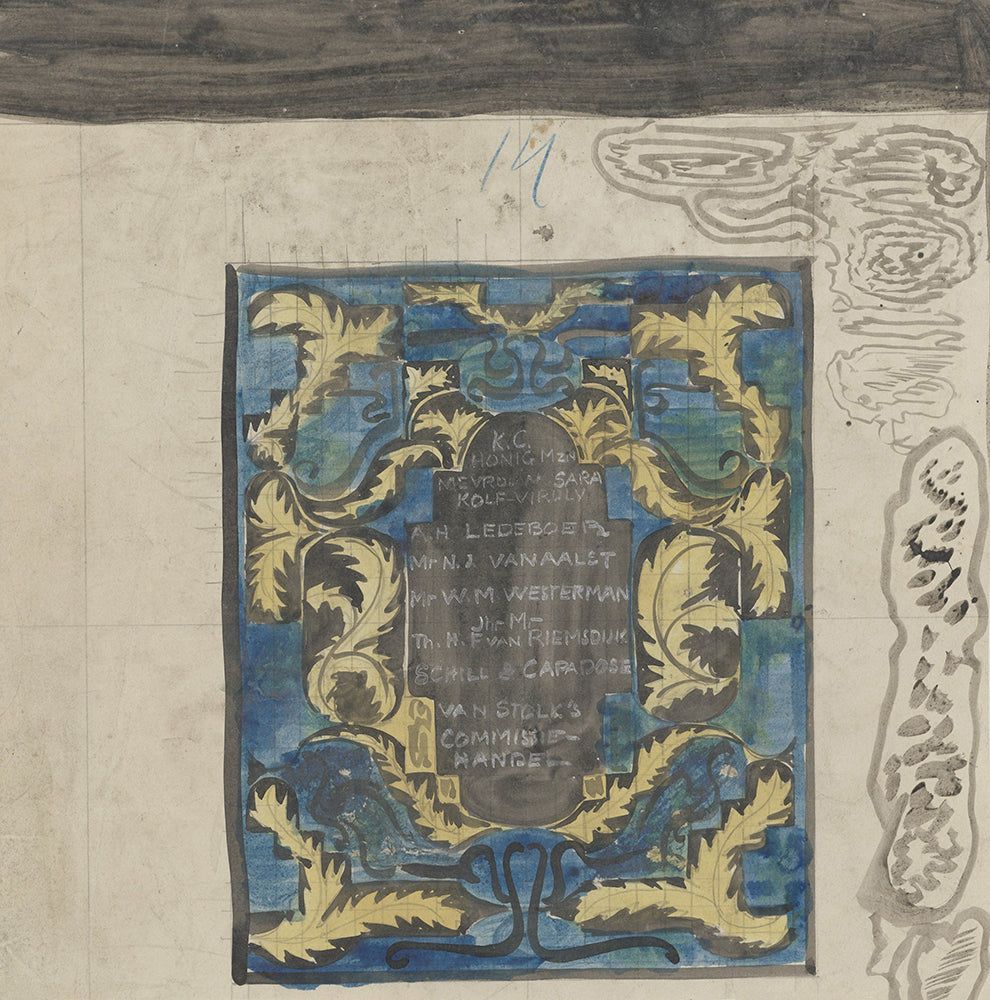 14
K.C.
HONIG Mzn
MEVROUW SARA
KOLF-VIRULY
A.H LEDEBOER
Mr N. J. VAN AALST
Mr W. M WESTERMAN
Jhr M-
Th. H. F VAN RIEMSDIJK
SCHILL & CAPADOSE
VAN STOLK'S
COMMISSIE-
HANDEL